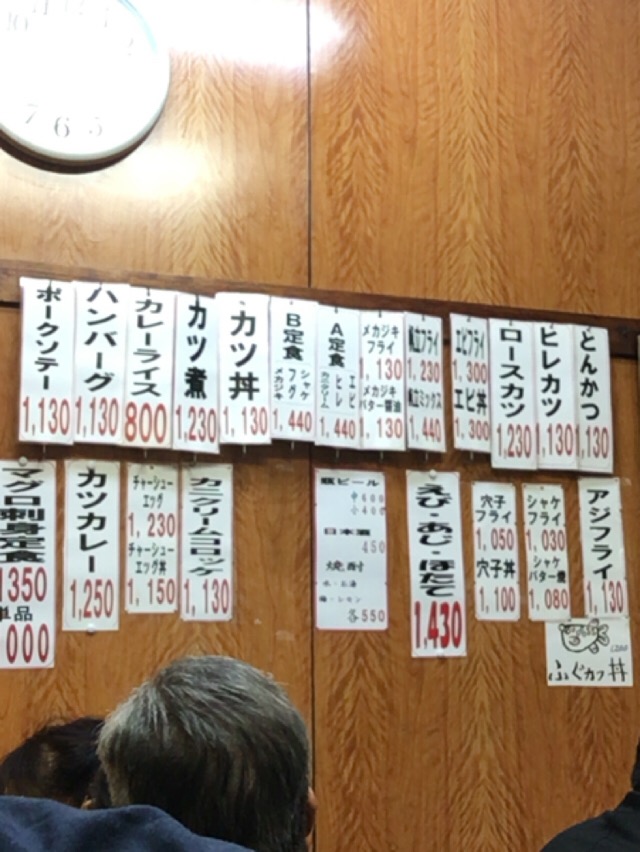 とんかつ
1,130
ヒレカツ
1,130
ロースカツ
1,230
エビフライ
1,300
エビ丼
1,300
帆立フライ
1,230
帆立ミックス
1,440
メカジキ
フライ
1,130
メカジキ
バター醤油
1,130
A定食
エビ
ヒレ
カニクリーム
1,440
B定食
シャケ
フグ
メカジキ
1,440
カツ丼
1,130
カツ煮
1,230
カレーライス
800
ハンバーグ
1,130
ポークソテー
1,130
アジフライ
1,130
ふぐカツ丼
シャケ
フライ
1,030
シャケ
バター焼
1,080
穴子
フライ
1,050
穴子丼
1,100
えび・あじ・ほたて
1,430
瓶ビール
中 600
小 400
日本酒
450
焼酎
水・お湯
梅・レモン
各550
カニクリームコロッケ
1,130
チャーシュー
エッグ
1,230
チャーシュー
エッグ丼
1,150
カツカレー
1,250
マグロ刺身定食
1350
単品
000
10
11
12
1
2
5
6
7